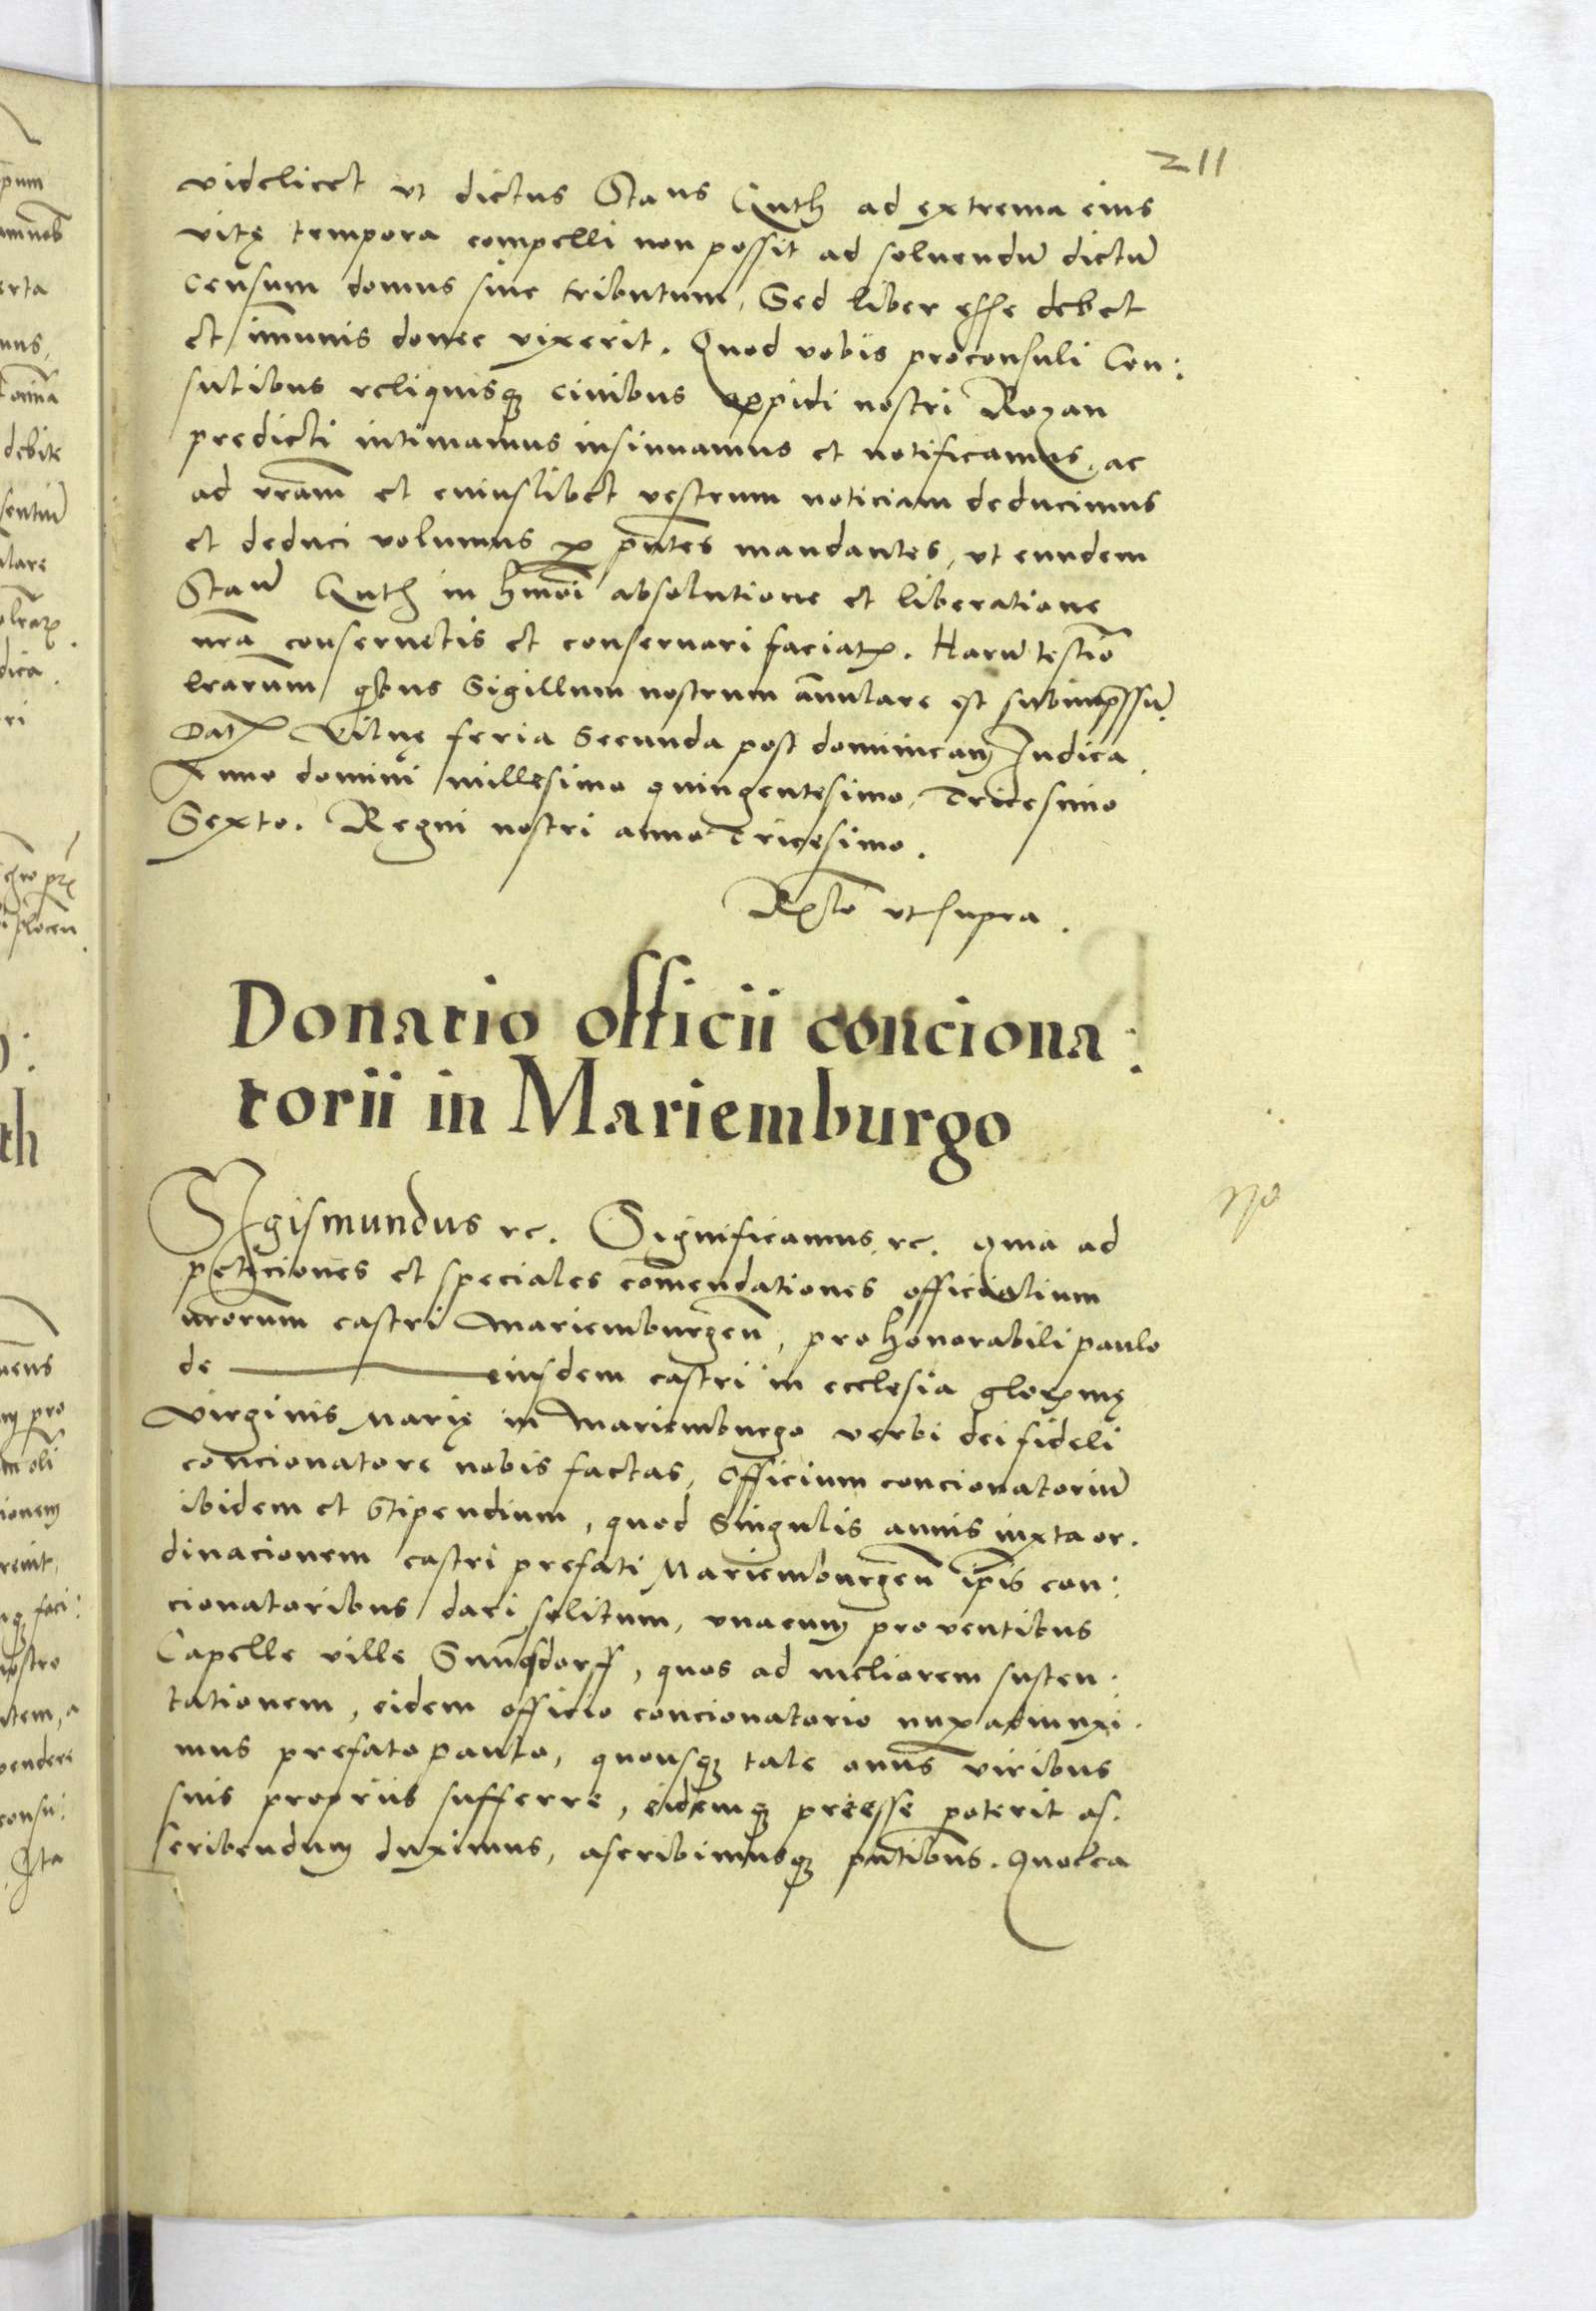 211
videlicet ut dictus Stans Quth ad extrema eius
vitę tempora compelli non possit ad soluendū dictū
censum domus siue tributum, Sed liber esse debet
et im̄unis donec vixerit. Quod vobis proconsuli Con:
sulibus reliquisq3 ciuibus oppidi nostri Rozan
predicti intimamus insinuamus et notificamus, ac
ad vram̄ et cuiuslibet vestrum noticiam deducimus
et deduci volumus p pn̄tes mandantes, ut eundem
Stan̄ Quth in hmōi absolutione et liberatione
nrā conseruetis et conseruari faciatis. Harū testīo
lrarum̄ quibus Sigillum nostrum an̄ulare est subimpressū.
Datˀ Vilnę feria Secunda post dominicam Iudica
Anno domini millesimo quingentesimo, Tricesimo
Sexto. Regni nostri anno Tricesimo.
Relō ut supra.
Donatio officii conciona:
torii in Mariemburgo
Sigismundus rc. Significamus, rc. Quia ad
peticiones et speciales com̄endationes officialium
nrorum̄ castri Mariemburgen̄, pro honorabili paulo
de eiusdem castri in ecclesia glorimę
Virginis Marię in Mariemburgo verbi dei fideli
concionatore nobis factas, Officium concionatoriū
ibidem et Stipendium, quod Singulis annis iuxta or.
dinacionem castri prefati Mariemburgen̄ ip̄is con:
cionatoribus dari solitum, vnacum prouentibus
Capelle ville Sunigsdorff, quos ad meliorem susten.
tationem, eidem officio concionatorio nup adiunxi.
mus prefato paulo, quousq3 tale onus viribus
suis propriis sufferre, eidemq3 preesse poterit as.
scribendum duximus, ascribimusq3 pn̄tibus. Quocca